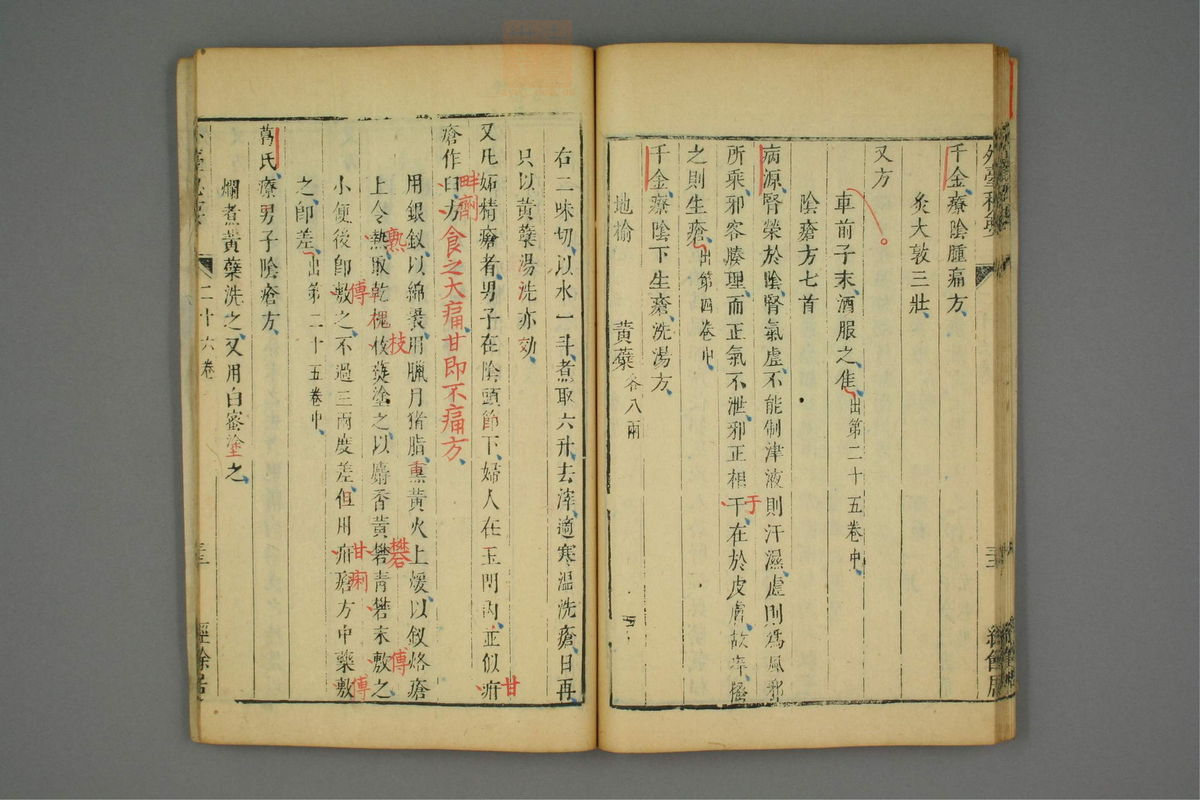 千金療陰腫痛方
灸大敦三壯
又方
車前子末酒服之隹出第二十五卷中
陰瘡方七首
病源腎榮於陰腎氣虛不能制津液則汗濕虛則為風邪
所乘邪客腠理而正氣不泄邪正相干在於皮膚故
于
之則生瘡出第四卷中
千金療陰下生瘡洗湯方
地榆 黃蘗各八兩
右二味切以水一斗煮取六升去滓適寒溫洗瘡日再
只以黃蘗湯洗亦効
又凡妬精瘡者男子在陰頭節下婦人在玉門內並似疳
甘
瘡作臼方食之大痛甘即不痛方
畔齊
用銀釵以綿裹用臘月猪脂熏黃火上煖以釵烙瘡
上令熱取乾槐枝塗之以麝香黃礬青礬末敷之
熟 枝 礬 傅
小便後即敷之不過三兩度差但用疳瘡方中藥敷
傅 甘 痢 傅
之即差出第二十五卷中
葛氏療男子陰瘡方
爛煮黃蘗洗之又用白蜜塗之
二十六卷
經餘居